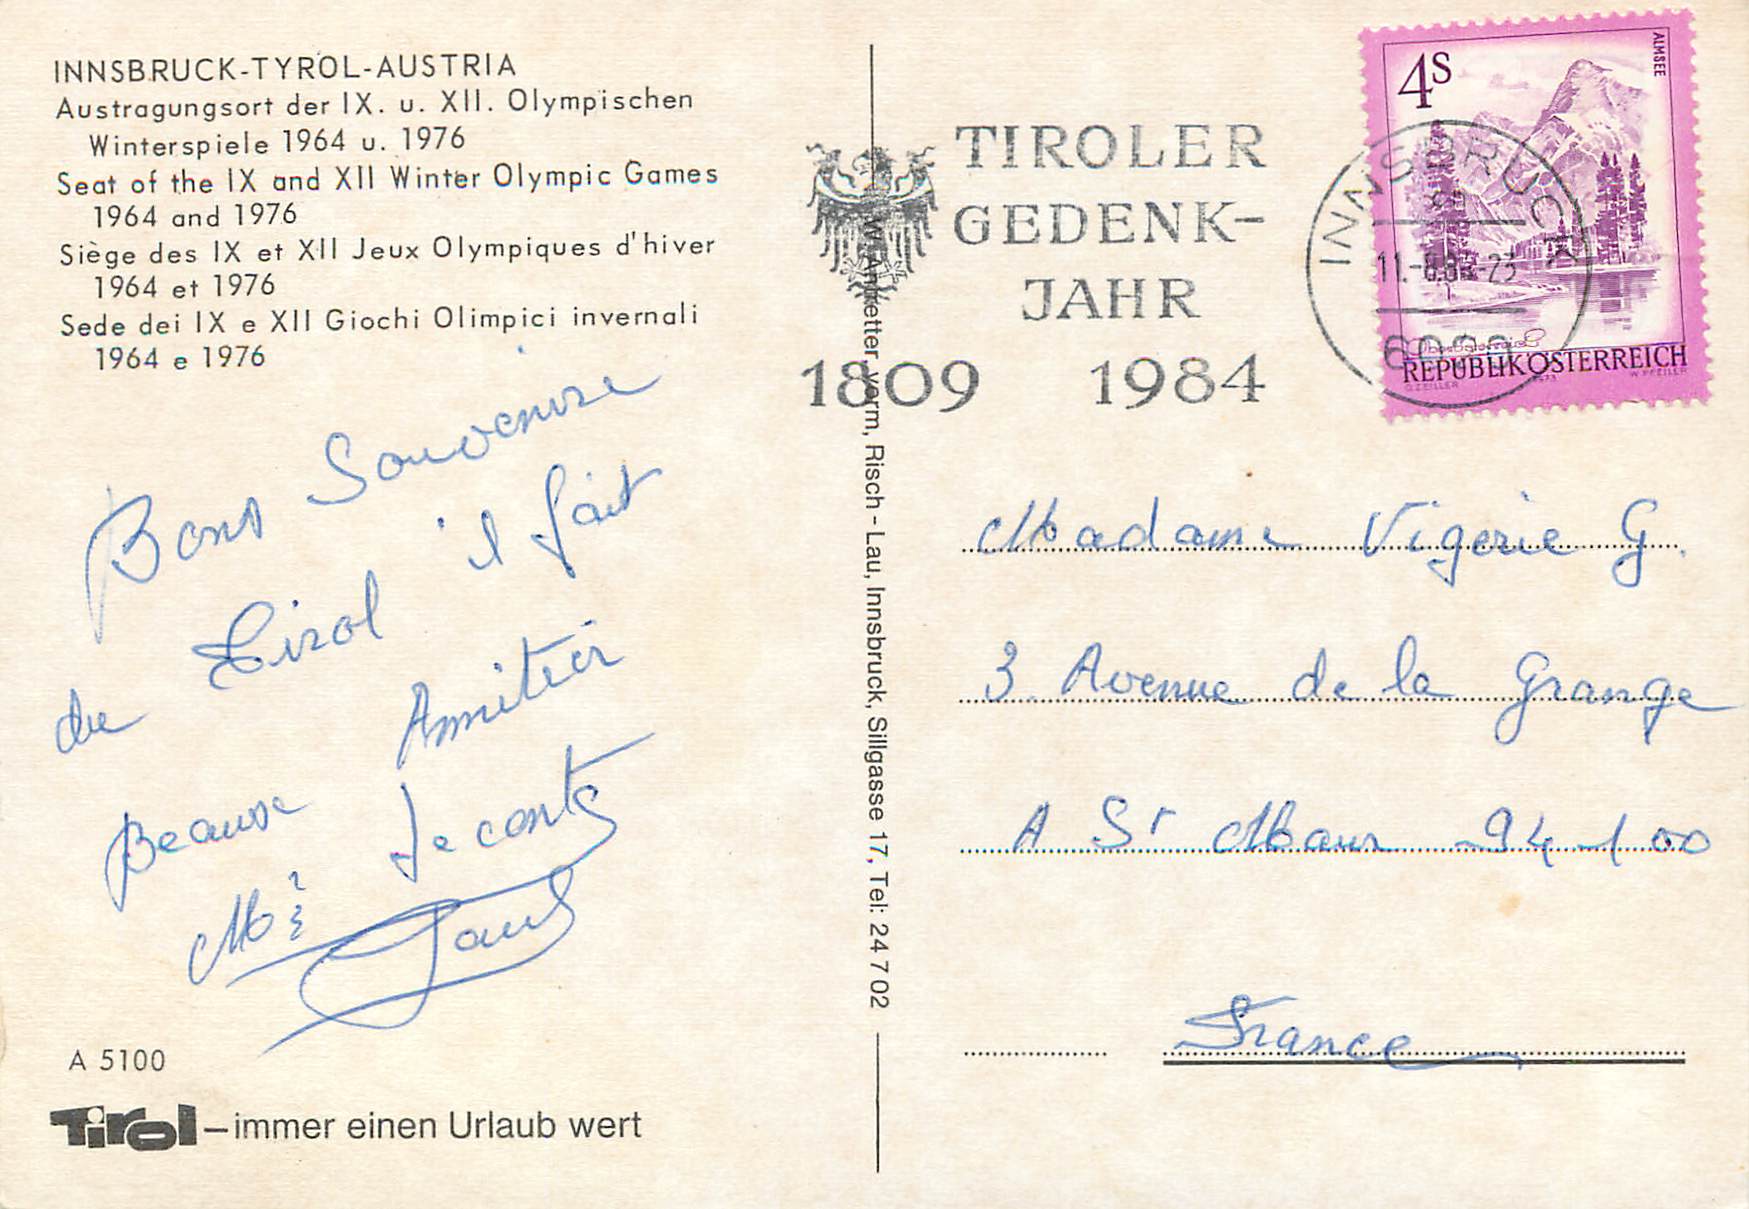 INNSBRUCK-TYROL-AUSTRIA
Austragungsort der IX. u. XII. Olympischen
Winterspiele 1964 u. 1976
Seat of the IX and XII Winter Olympic Games
1964 and 1976
Siège des IX et XII Jeux Olympiques d'hiver
1964 et 1976
Sede dei IX e XII Giochi Olimpici invernali
1964 e 1976
Bons Souvenire
du Tirol il fait
Beause Amitier
Me Leconte
Paul
A 5100
Tirol – immer einen Urlaub wert
vorm, Risch - Lau, Innsbruck, Sillgasse 17, Tel: 24 7 02
TIROLER
GEDENK-
JAHR
1809 1984
INNSBRUCK
4S
ALMSEE
REPUBLIK ÖSTERREICH
Madame Vigerie G.
3 Avenue de la Grange
A St Maur 94100
France